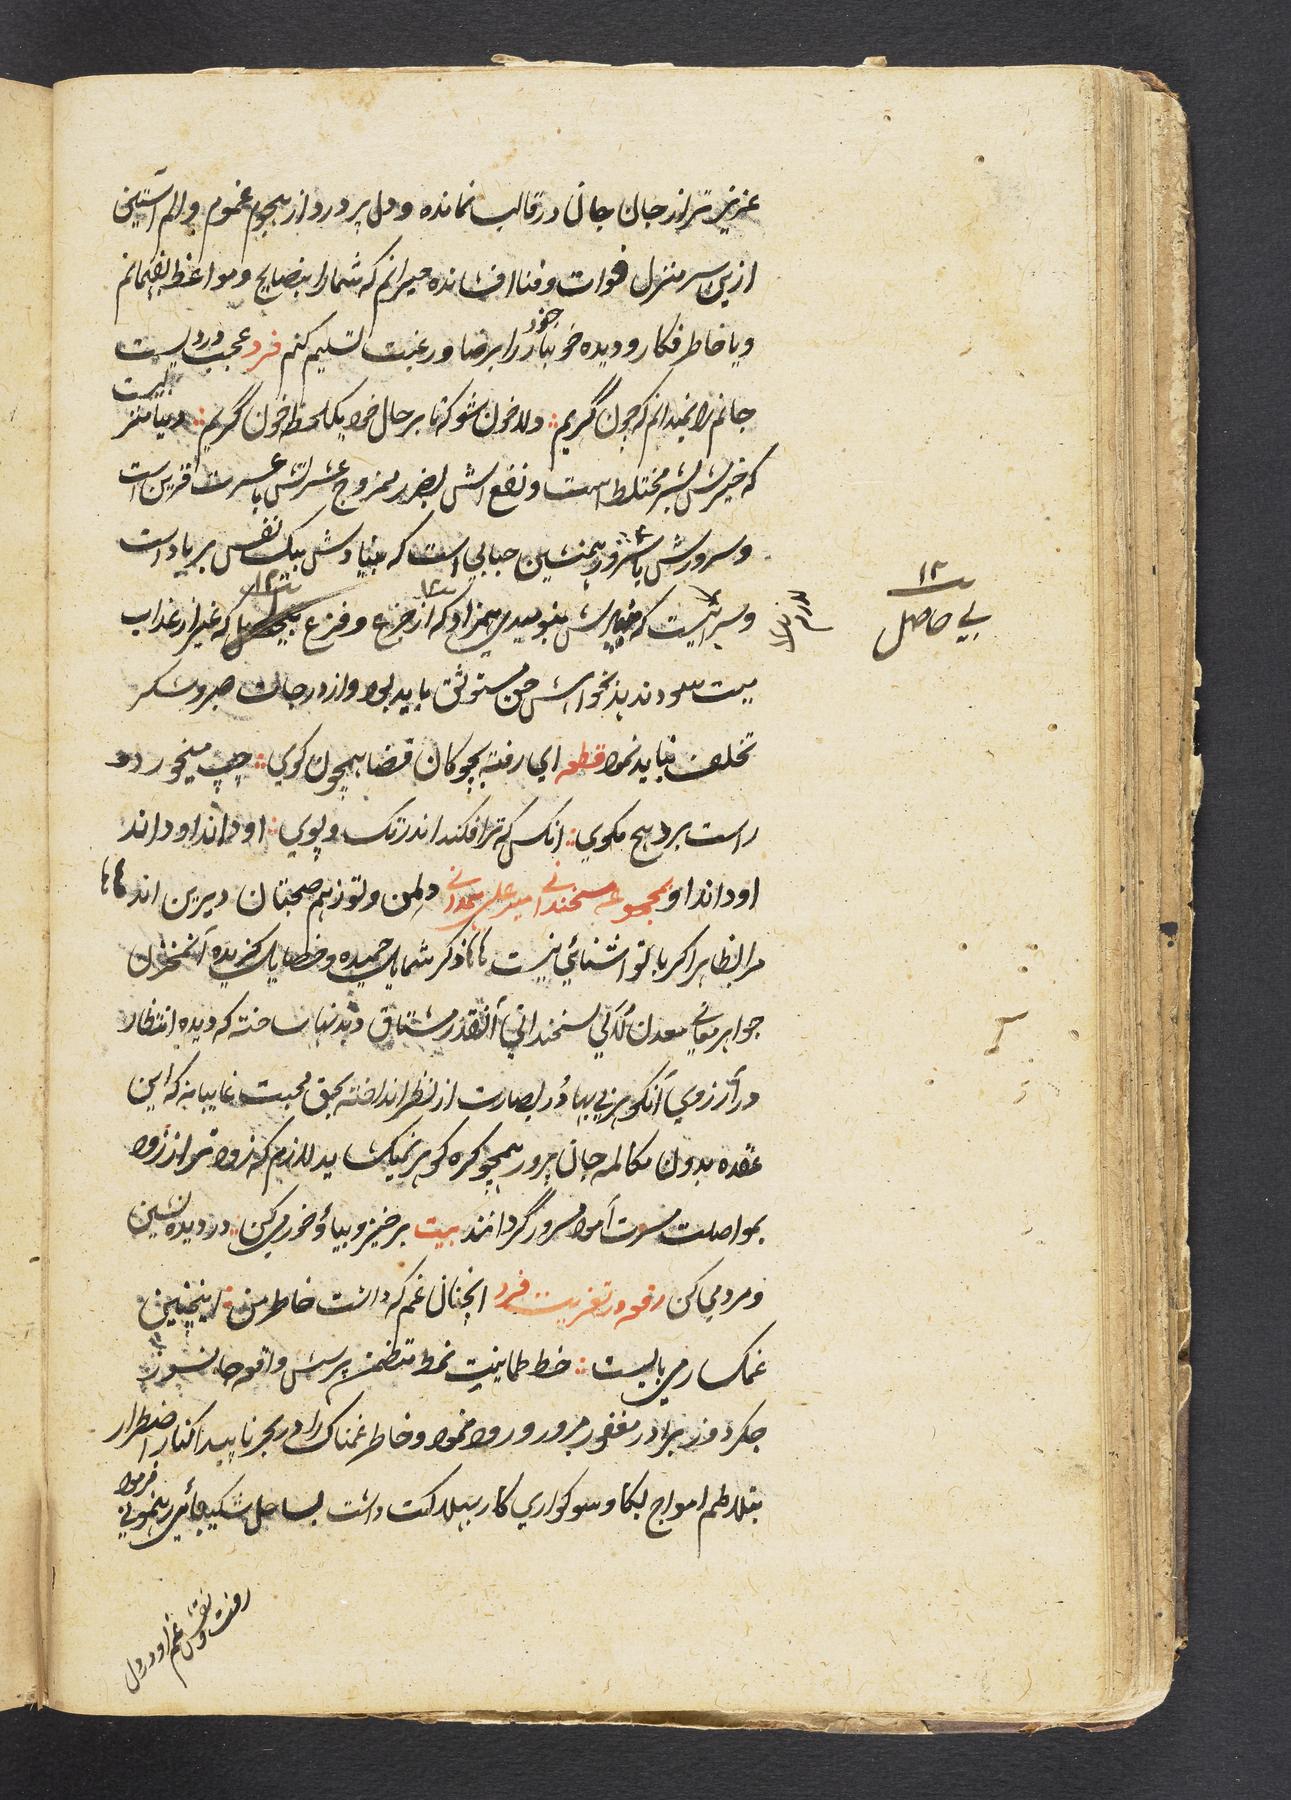 عزیزتر از جان جان در قالب نمانده و دل پر درد از هجوم غموم و الم آستین
ازین سر منزل فوات و فنا افشانده حیرانم که شما را بنصایح و مواعظ بفهمانم
و یا خاطر فکار و دیده خونبار خود را برضا و رغبت تسلیم کنم فرد عجب دردیست
جانم را نمیدانم که چون گریم :: دلا خون شو که تا بر حال خود یکلحظه خون گریم :: دنیا منزلیست
که خیرش بشر مختلط است و نفع اش بضرر ممزوج عشرتش با عسرت قرین است
و سرورش با شرور همنشین حبابی است که بنیادش بیک نفس بر باد است
و سرائیست که بنومیدی همزاد که از جزع و فزع که غیر از عذاب
میت سودند بذخواش مستوثق باید بود و از درجات صبر و شکر
تخلف نباید نمود قطعه ای رفته بچوکان قضا همچون کوی :: چپ میخور و
راست برو هیچ مکوی :: انکس که ترا فکند اندر تک و پوی :: او داند او داند
او داند او بمجموعه سخندانی میر علی همدانی دلمن و تو ز هم صحبتان دیرین اند
مرا بظاهر اکر با تو اشنائی نیست ذکر شمایل حمیده و خصایل کزیده آنمخزن
جواهر معانی معدن لآلی سخندانی آنقدر مشتاق دیدنها ساخته که دیده انتظار
در آرزوی آنگوهر بی بها دُر بصارت از نظر انداخته بحق محبت غایبانه که این
عقده بدون مکالمه جان پرور همچو کره کوهر نمیکشاید لازم که زود تر از زود
بمواصلت مسرت آمود مسرور گردانند بیت برخیز و بیا و خورمی کن :: در دیده نشین
و مردمی کن رقعه در تعزیت فرد انچنان غم که داشت خاطر من :: اینچنین
غمکسار می بایست :: خط طمانینت نمط متضمن پرسش واقعه جانسوز
جکردوز برادر مغفور مبرور ورود نمود و خاطر غمناک را در بحر ناپیدا کنار اضطرار
بتلاطم امواج بکا و سوکواری کار بهلاکت داشت بساحل شکیبائی رهنمونی فرمود
بی حاصل
۱۲
رفت و نقش غم او در دل